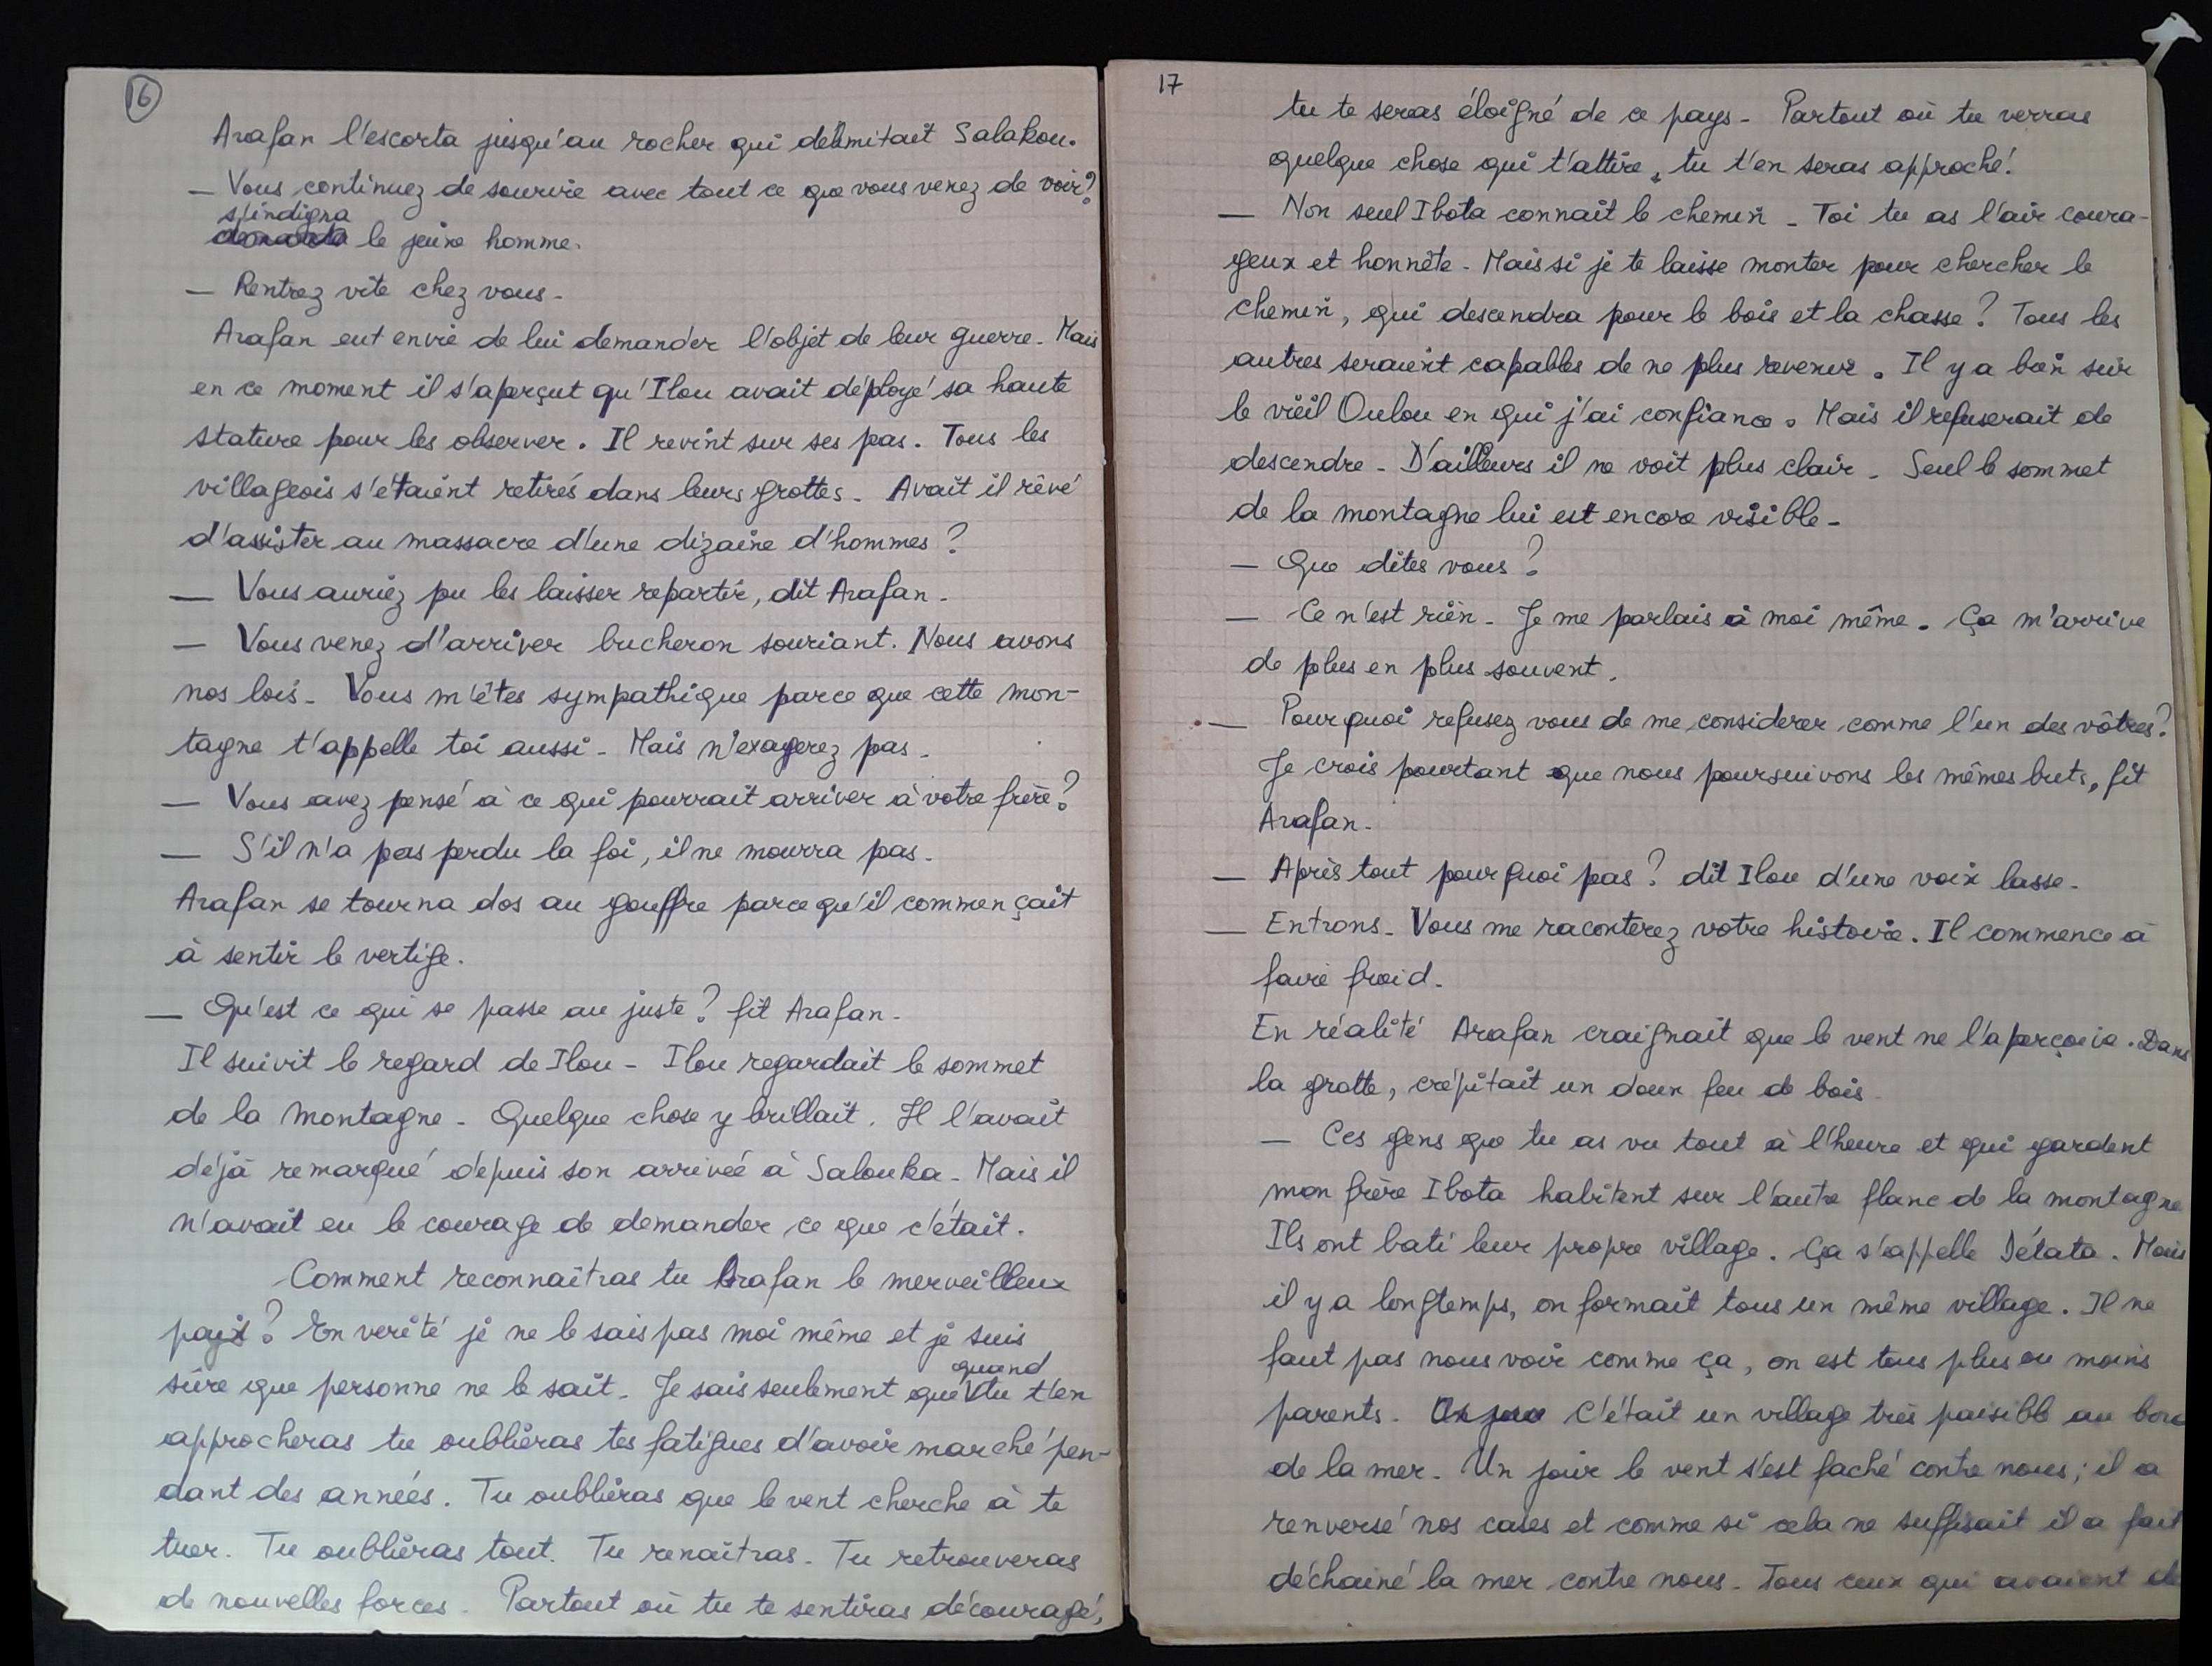 16
Arafan l'escorta jusqu'au rocher qui délimitait Salakou.
— Vous continuez de sourire avec tout ce que vous venez de voir?
s'indigna
le jeune homme.
— Rentrez vite chez vous.
Arafan eut envie de lui demander l'objet de leur guerre. Mais
en ce moment il s'aperçut qu'Ilou avait déployé sa haute
stature pour les observer. Il revint sur ses pas. Tous les
villageois s'étaient retirés dans leurs grottes. Avait il rêvé
d'assister au massacre d'une dizaine d'hommes?
— Vous auriez pu les laisser repartir, dit Arafan.
— Vous venez d'arriver bucheron souriant. Nous avons
nos lois. Vous m'êtes sympathique parce que cette mon-
tagne t'appelle toi aussi. Mais n'exagerez pas.
— Vous avez pensé à ce qui pourrait arriver à votre frère?
— S'il n'a pas perdu la foi, il ne mourra pas.
Arafan se tourna dos au gouffre parce qu'il commençait
à sentir le vertige.
— Qu'est ce qui se passe au juste? fit Arafan.
Il suivit le regard de Ilou - Ilou regardait le sommet
de la montagne. Quelque chose y brillait. Il l'avait
déjà remarqué depuis son arrivée à Salouka. Mais il
n'avait eu le courage de demander ce que c'était.
Comment reconnaîtras tu Arafan le merveilleux
pays? En verité je ne le sais pas moi même et je suis
sûre que personne ne le sait. Je sais seulement que quand tu t'en
approcheras tu oublieras tes fatigues d'avoir marché pen-
dant des années. Tu oublieras que le vent cherche à te
tuer. Tu oublieras tout. Tu renaîtras. Tu retrouveras
de nouvelles forces. Partout où tu te sentiras découragé,
17
tu te seras éloigné de ce pays. Partout où tu verras
quelque chose qui t'attire, tu t'en seras approché!
— Non seul Ibota connait le chemin. Toi tu as l'air coura-
geux et honnête. Mais si je te laisse monter pour chercher le
chemin, qui descendra pour le bois et la chasse? Tous les
autres seraient capables de ne plus revenir. Il y a bien sûr
le vieil Oulou en qui j'ai confiance. Mais il refuserait de
descendre. D'ailleurs il ne voit plus clair. Seul le sommet
de la montagne lui est encore visible.
— Que dites vous?
— Ce n'est rien. Je me parlais à moi même. Ça m'arrive
de plus en plus souvent.
— Pourquoi refusez vous de me considerer comme l'un des vôtres?
Je crois pourtant que nous poursuivons les mêmes buts, fit
Arafan.
— Après tout pourquoi pas? dit Ilou d'une voix lasse.
— Entrons. Vous me raconterez votre histoire. Il commence à
faire froid.
En réalité Arafan craignait que le vent ne l'aperçoive. Dans
la grotte, crépitait un doux feu de bois.
— Ces gens que tu as vu tout à l'heure et qui gardent
mon frère Ibota habitent sur l'autre flanc de la montagne
Ils ont bati leur propre village. Ça s'appelle Délata. Mais
il y a longtemps, on formait tous un même village. Il ne
faut pas nous voir comme ça, on est tous plus ou moins
parents. C'était un village très paisible au bord
de la mer. Un jour le vent s'est faché contre nous; il a
renversé nos cases et comme si cela ne suffisait il a fait
déchainé la mer contre nous. Tous ceux qui avaient de